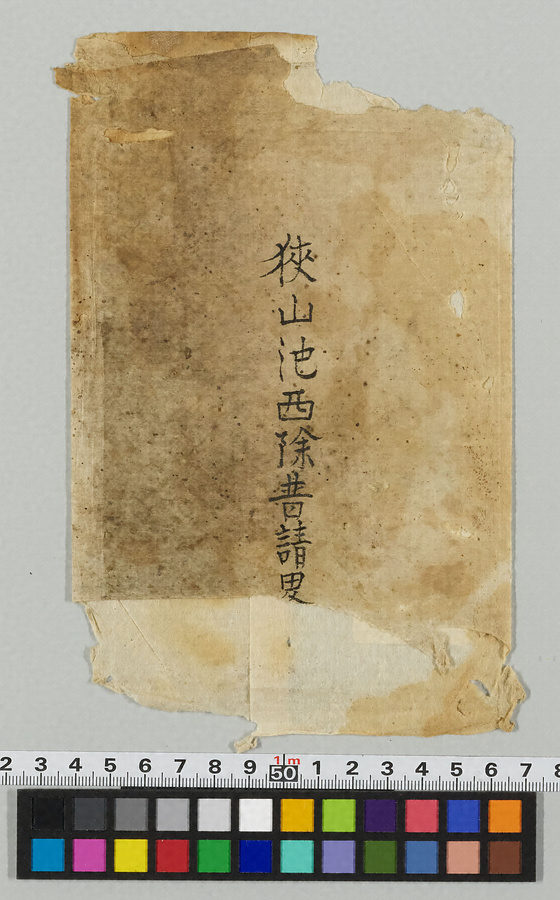 狹山池西除普請
2 3 4 5 6 7 8 9 1m 50 1 2 3 4 5 6 7 8